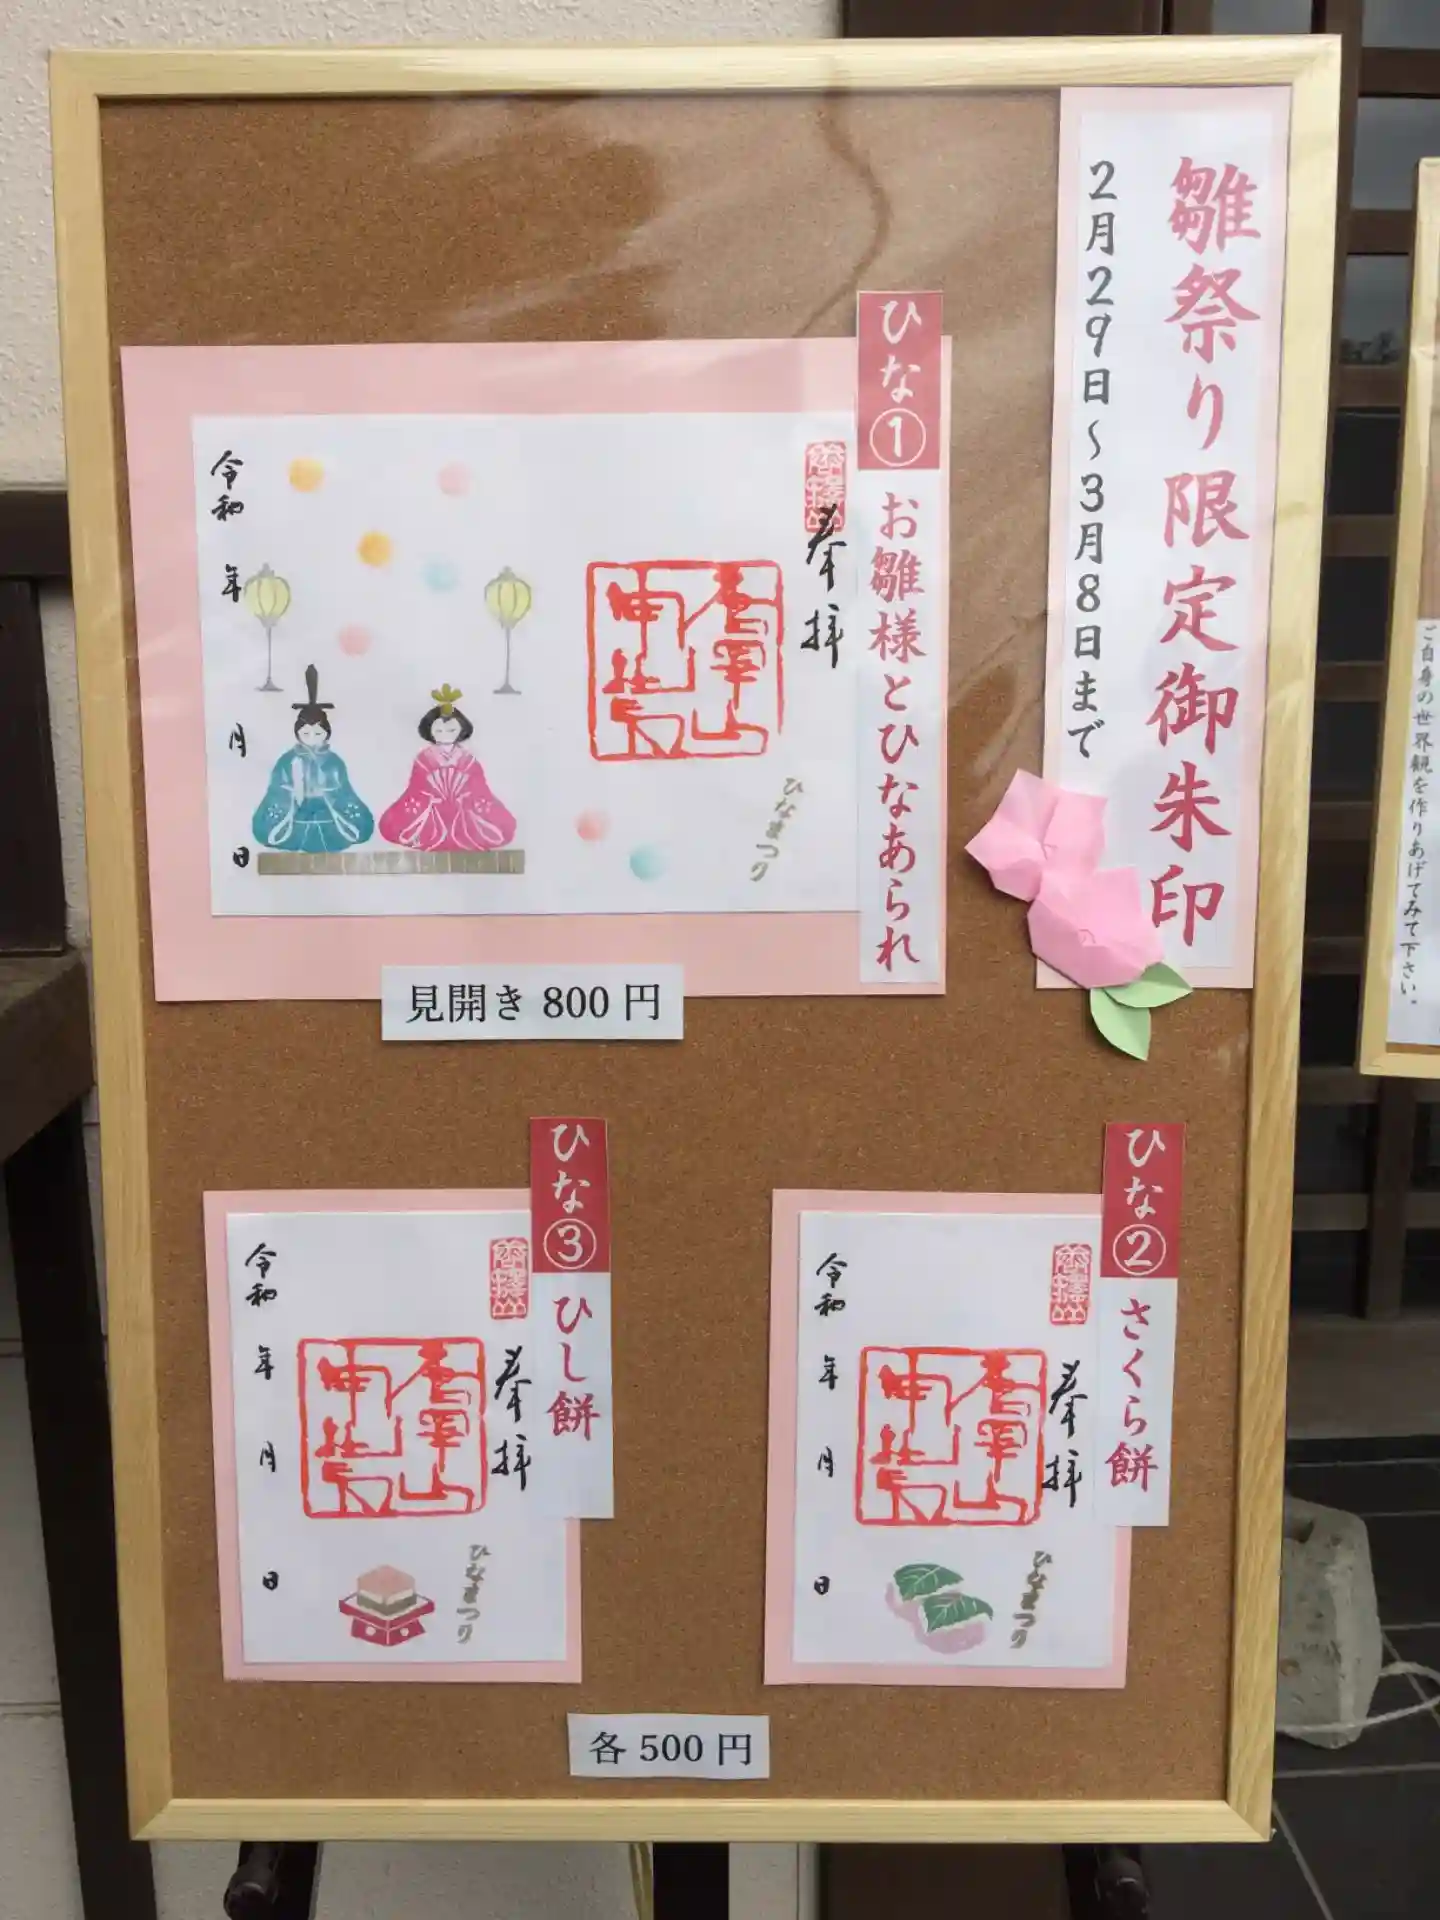 雛祭り限定御朱印
2月29日～3月8日まで
ひな① お雛様とひなあられ
奉拝
ひなまつり
令和 年 月 日
見開き 800 円
ひな② さくら餅
奉拝
ひなまつり
令和 年 月 日
ひな③ ひし餅
奉拝
ひなまつり
令和 年 月 日
各 500 円
ご自身の世界観を作りあげてみて下さい。